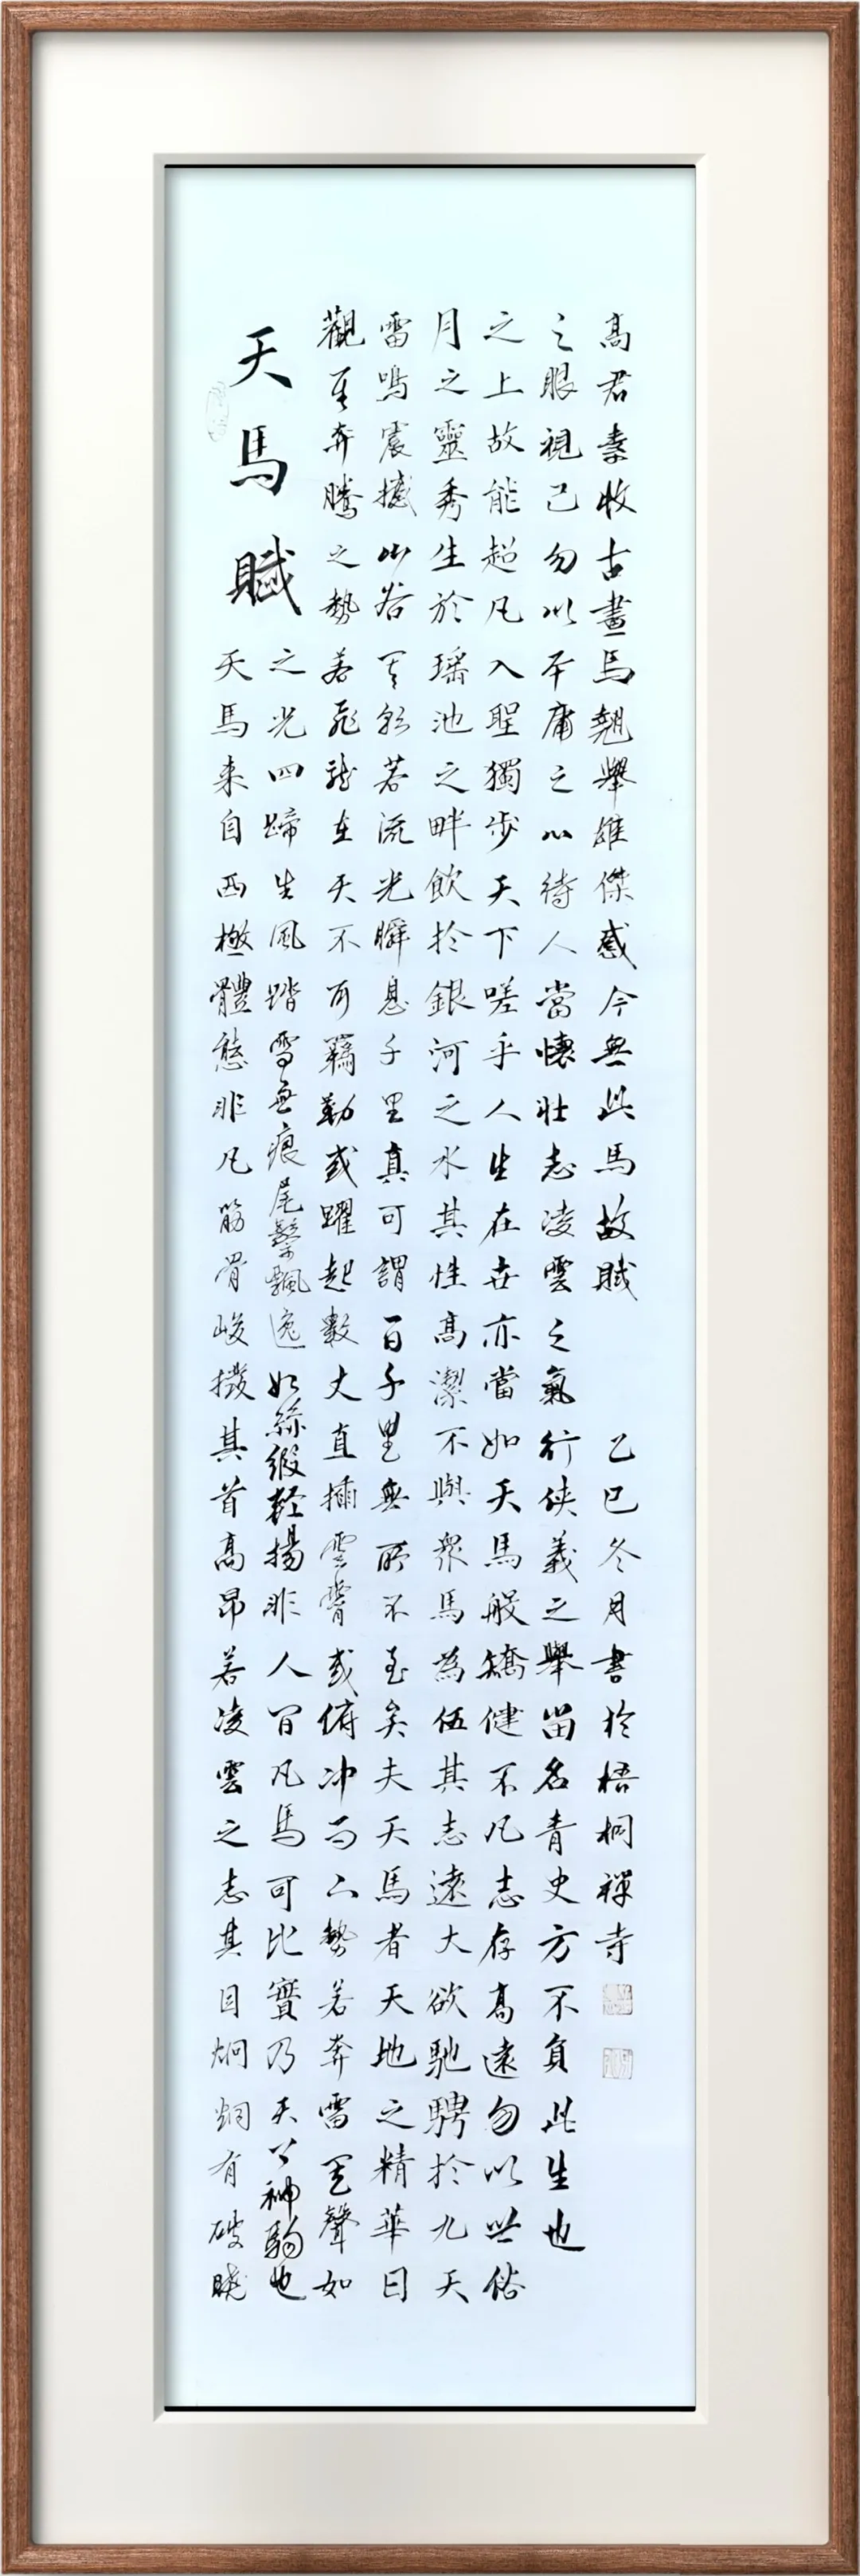 天馬賦
天馬來自西極體態非凡筋骨峻拔其首高昂若凌雲之志其目炯炯有破曉
之光四蹄生風踏雪無痕尾鬃飄逸如絲緞輕揚非人間凡馬可比實乃天上神駒也
觀其奔騰之勢若飛龍在天不可羈勒或躍起數丈直插雲霄或俯沖而下勢若奔雷其聲如
雷鳴震撼山谷其影若流光瞬息千里真可謂百千里無所不至矣夫天馬者天地之精華日
月之靈秀生於瑤池之畔飲於銀河之水其性高潔不與眾馬為伍其志遠大欲馳騁於九天
之上故能超凡入聖獨步天下嗟乎人生在世亦當如天馬般矯健不凡志存高遠勿以世俗
之眼視己勿以平庸之心待人當懷壯志凌雲之氣行俠義之舉留名青史方不負此生也
高君素收古畫馬翹舉雄傑感今無此馬故賦 乙巳冬月書於梧桐禪寺